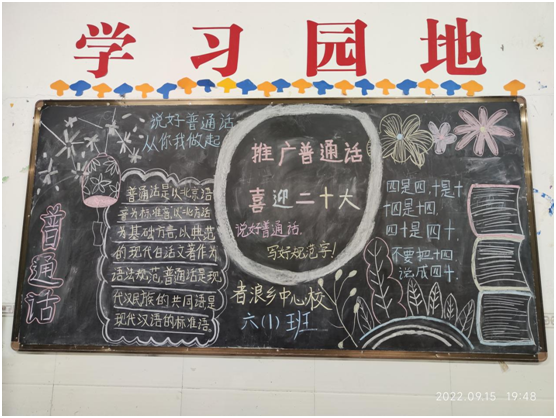 学习园地
说好普通话
从你我做起
普通话
普通话是以北京语
音为标准音,以北方话
为基础方言,以典范
的现代白话文著作为
语法规范,普通话是现
代汉民族的共同语,是
现代汉语的标准语.
推广普通话
喜迎二十大
说好普通话.
写好规范字!
者浪乡中心校
六(1)班
四是四,十是十
十四是十四.
四十是四十
不要把十四
说成四十.
2022.09.15 19:48